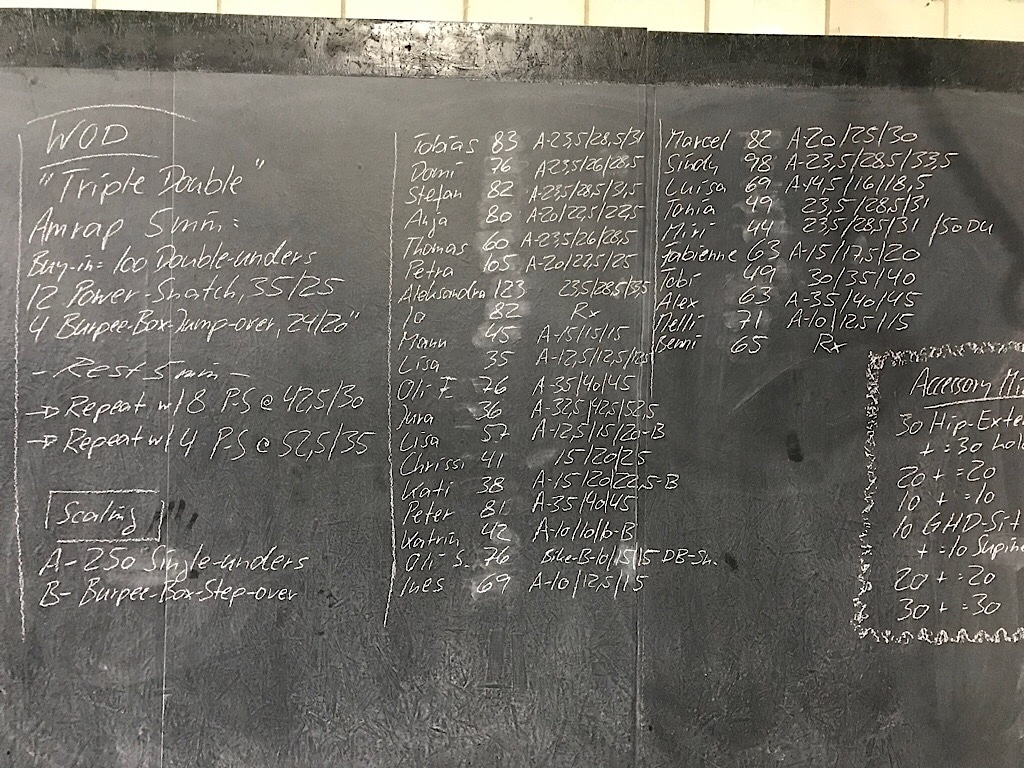 WOD
"Triple Double"
Amrap 5min:
Buy-in: 100 Double-unders
12 Power-Snatch, 35/25
4 Burpee-Box-Jump-over, 24/20"
- Rest 5 min -
→ Repeat w/ 8 PS @ 42,5/30
→ Repeat w/ 4 PS @ 52,5/35
Scaling
A - 250 Single-unders
B - Burpee-Box-Step-over
Tobias 83 A-23,5/28,5/31
Domi 76 A-23,5/26/28,5
Stefan 82 A-23,5/28,5/31,5
Anja 80 A-20/22,5/22,5
Thomas 60 A-23,5/26/28,5
Petra 105 A-20/22,5/25
Aleksandra 123 23,5/28,5/33,5
Jo 82 Rx
Manu 45 A-15/15/15
Lisa 35 A-12,5/12,5/12,5
Oli F. 76 A-35/40/45
Jura 36 A-32,5/42,5/52,5
Lisa 57 A-12,5/15/20-B
Chrissi 41 15/20/25
Kati 38 A-15/20/22,5-B
Peter 81 A-35/40/45
Katrin 42 A-10/10/10-B
Oli S. 76 Bike-B-10/15/15 DB-Sn.
Ines 69 A-10/12,5/15
Marcel 82 A-20/25/30
Sindy 98 A-23,5/28,5/33,5
Luisa 69 A-14,5/16/18,5
Tonia 49 23,5/28,5/31
Mini 44 23,5/28,5/31 /50 DU
Fabienne 63 A-15/17,5/20
Tobi 49 30/35/40
Alex 63 A-35/40/45
Melli 71 A-10/12,5/15
Benni 65 Rx
Accessory Mi
30 Hip-Exte
+ =30 Hol
20 + =20
10 + =10
10 GHD-Sit
+ =10 Supine
20 + =20
30 + =30